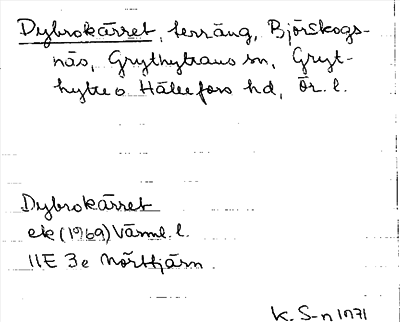 Dybrokärret, terräng, Björskogs-
näs, Grythyttans sn, Gryt-
hytte o Hällefors hd, Ör. l.
Dybrokärret
ek (1969) Värml. l.
11E 3e Norrtjärn
K. S-n 1971